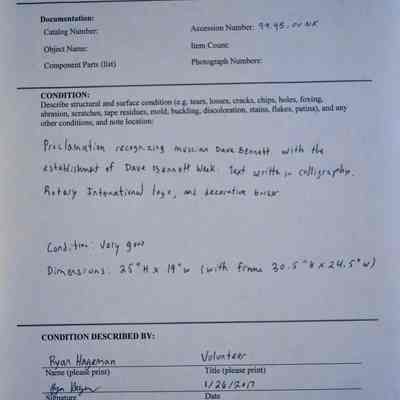 Documentation:
Catalog Number:
Accession Number: 99.45.01 NR
Object Name:
Item Count:
Component Parts (list)
Photograph Numbers:
CONDITION:
Describe structural and surface condition (e.g. tears, losses, cracks, chips, holes, foxing,
abrasion, scratches, tape residues, mold, buckling, discoloration, stains, flakes, patina), and any
other conditions, and note location:
Proclamation recognizing musician Dave Bennett with the
establishment of Dave Bennett Week. Text written in calligraphy.
Rotary International logo, and decorative border
Condition: Very good
Dimensions: 25"H x 19"w (with frame 30.5"H x 24.5"w)
CONDITION DESCRIBED BY:
Ryan Hageman
Volunteer
Name (please print)
Title (please print)
1/26/2017
Signature
Date